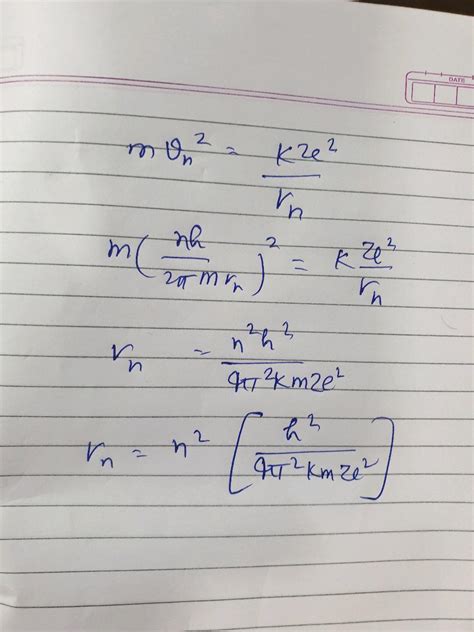 DATE
m v_n^2 = KZe^2 / r_n
m (nh / 2π m r_n)^2 = K Ze^2 / r_n
r_n = n^2 h^2 / 4π^2 K m Z e^2
r_n = n^2 [ h^2 / 4π^2 K m Z e^2 ]